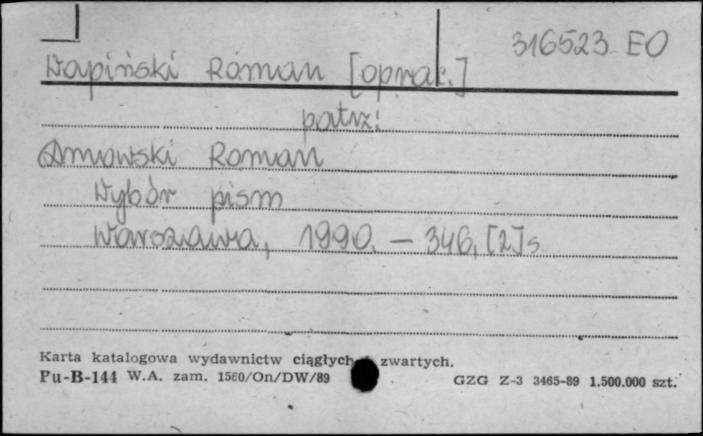 316523 EO
Wapiński Roman [oprac.]
patrz:
Dmowski Roman
Wybór pism
Warszawa, 1990. – 346, [2] s.
Karta katalogowa wydawnictw ciągłych zwartych.
Pu-B-144 W.A. zam. 1560/On/DW/89 GZG Z-3 3465-89 1.500.000 szt.